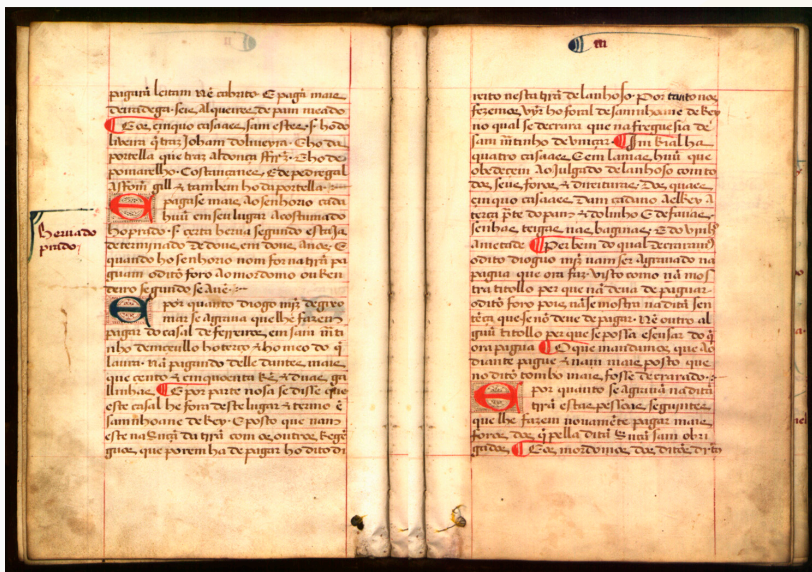 pagara leitam nẽ cabrito. E pagã mais
demadega. seis alqueires de pam meado
Eos cinquo casaaes sam estes. s. ho do
liueira q̃ traz Joham doliueyra. E ho da
portella que traz aldonça E ho de
pomarelho. Costancinee. E de pedregal
gill & tambem ho da portella.
E pagase mais ao senhorio cada
huũ em seu lugar acostumado
ho prado. s. certa herua segundo esta ja
determinado de dous em dous anos. E
quando ho senhorio nom for na trã pa
guam o dito foro ao mordomo ou Ren
deiro segundo se
Herua do
prado
E por quanto diogo mjz̃ de
mar se agraua que lhe fazem
pagar do casal de ferreiros em sam m̃ti
nho ho terço & ho meo do q̃
laura. nã paguindo delle dantes mais
que cento & cinquoenta Rs̃ & duas ga
llinhas E por parte nosa se disse que
este casal he fora deste lugar & termo ẽ
sam nhoane de Rey. E posto que nam
este na da trã com os outros Rege
guos, que porem ha de pagar ho dito di
iij
reito nesta trã de lanhoso. Por tanto nos
fezemos vyr ho foral de sam nhoane de Rey
no qual se decrara que na freguesia de
sam m̃tinho de ha
quatro casaaes. E em lamas huũ que
obedecem ao Julgado de lanhoso com to
dos seus foros & direitures. Dos quaes
cinquo casaaes dam cadano a el Rey a
terça p̃te do pam & do linho E de fauas
senhas teigas nas baginas. E do vinho
ametade Per bem do qual decraramos
o dito dioguo mjz̃ nam ser agrauado na
pagua que ora faz visto como nã mos
tra titollo per que nã deua de paguar
o dito foro pois nã se mostra na dita sen
tẽça que se nõ deue de pagar. Nẽ outro al
guũ titollo per que se possa escusar do q̃
ora pagua O que mandamos que ao
diante pague & nam mais posto que
no dito tombo mais fosse decrarado
E por quanto se agrauã na dita
trã estas pessoas seguintes
que lhe fazem nouamẽte pagar mais
foros dos q̃ pella dita sam obri
gados Eos mordomos dos ditos